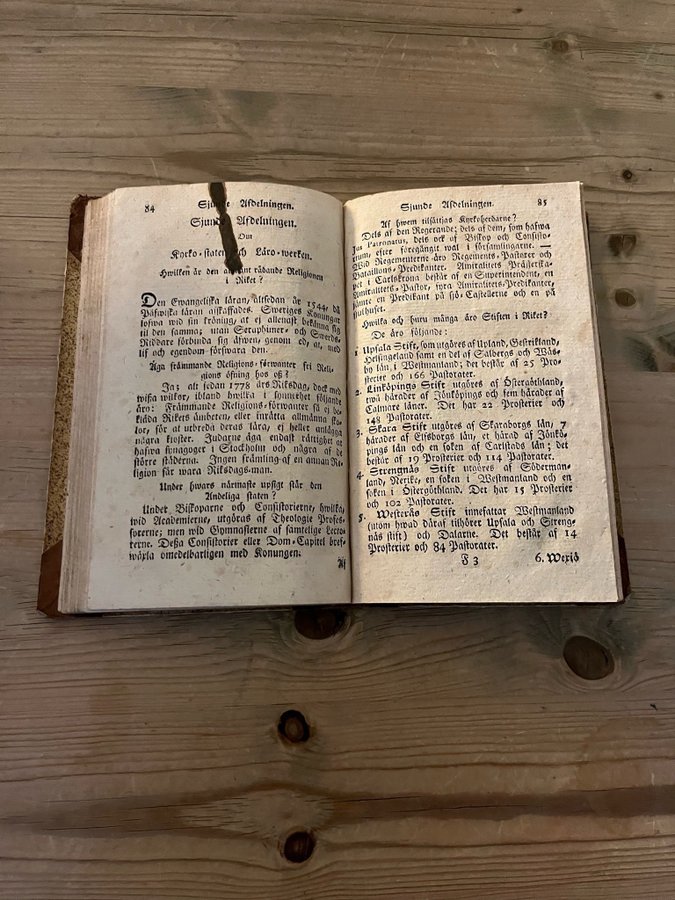 84 Sjunde Afdelningen.
Sjunde Afdelningen.
Om
Kyrko-staten och Läro-werken.
Hwilken är den allmänt rådande Religionen
i Riket?
Den Ewangeliska läran, altsedan år 1544, då
Påfwiska läran afskaffades. Sweriges Konungar
lofwa wid sin kröning, at ej allenast bekänna sig
til den samma; utan Seraphiner- och Swerds-
Riddare förbinda sig äfwen, genom ed, at, med
lif och egendom förswara den.
Äga främmande Religions-förwanter fri Reli-
gions öfning hos oß?
Ja; alt sedan 1778 års Riksdag, dock med
wißa wilkor, ibland hwilka i synnerhet följande
äro: Främmande Religions-förwanter få ej be-
kläda Rikets ämbeten, eller inrätta allmänna sko-
lor, för at utbreda deras lära, ej heller anlägga
några kloster. Judarne äga endast rättighet at
hafwa synagoger i Stockholm och några af de
större städerna. Ingen främling af en annan Re-
ligion får wara Riksdags-man.
Under hwars närmaste upsigt står den
Andeliga staten?
Under Biskoparne och Consistorierne, hwilka,
wid Academierne, utgöras af Theologie Profes-
sorerne; men wid Gymnasierne af samtelige Lecto-
rerne. Deßa Consistorier eller Dom-Capitel bref-
wäxla omedelbarligen med Konungen.
Af
Sjunde Afdelningen. 85
Af hwem tilsättjas Kyrkoherdarne?
Dels af den Regerande; dels af dem, som hafwa
Jus Patronatus, dels ock af Biskop och Consisto-
rium, efter föregångit wal i församlingarne. —
Wid Regementerne äro Regements-Pastorer och
Bataillons-Predikanter. Amiralitets Prästerska-
pet i Carlskrona består af en Superintendent, en
Amiralitets-Pastor, fyra Amiralitets-Predikanter,
jämte en Predikant på sjö-Castellerne och en på
slutthuset.
Hwilka och huru många äro Stiften i Riket?
De äro följande:
1. Upsala Stift, som utgöres af Upland, Gestrikland,
Helsingeland samt en del af Salbergs och Wäs-
by län, i Westmanland; det består af 25 Pro-
sterier och 166 Pastorater.
2. Linköpings Stift utgöres af Östergöthland,
twå härader af Jönköpings och fem härader af
Calmare länet. Det har 22 Prosterier och
148 Pastorater.
3. Skara Stift utgöres af Skaraborgs län, 7
härader af Elfsborgs län, et härad af Jönkö-
pings län och en soken af Carlstads län; det
består af 19 Prosterier och 114 Pastorater.
4. Strengnäs Stift utgöres af Söderman-
land, Nerike, en soken i Westmanland och en
soken i Östergöthland. Det har 15 Prosterier
och 102 Pastorater.
5. Westerås Stift innefattar Westmanland
(utom hwad däraf tilhörer Upsala och Streng-
näs stift) och Dalarne. Det består af 14
Prosterier och 84 Pastorater.
F 3 6. Wexiö